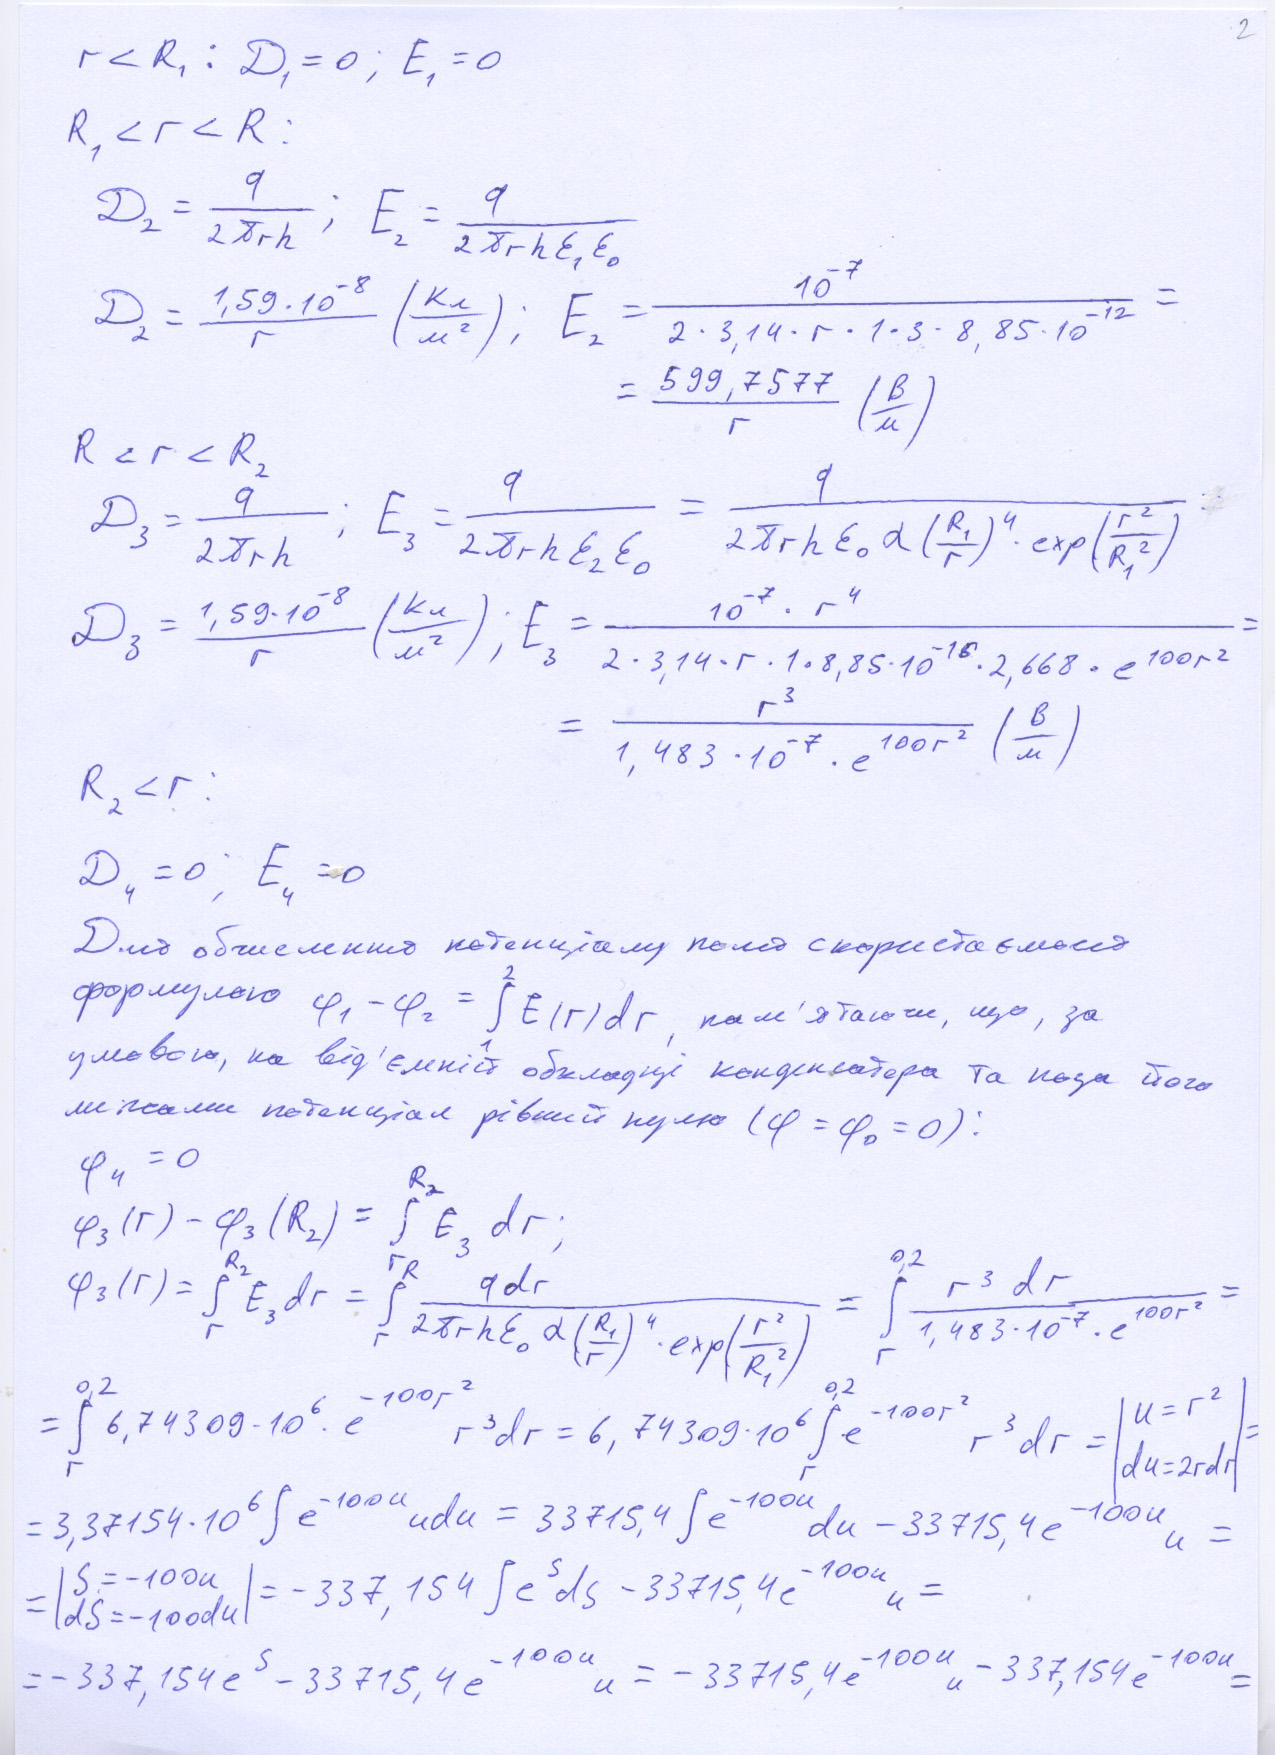 2
r < R₁ : D₁ = 0 ; E₁ = 0
R₁ < r < R :
D₂ = q / (2πrh) ; E₂ = q / (2πrhε₁ε₀)
D₂ = 1,59·10⁻⁸ / r (Кл/м²) ; E₂ = 10⁻⁷ / (2·3,14·r·1·3·8,85·10⁻¹²) =
= 599,7577 / r (В/м)
R < r < R₂
D₃ = q / (2πrh) ; E₃ = q / (2πrhε₂ε₀) = q / (2πrhε₀α(R₁/r)⁴·exp(r²/R₁²))
D₃ = 1,59·10⁻⁸ / r (Кл/м²) ; E₃ = 10⁻⁷·r⁴ / (2·3,14·r·1·8,85·10⁻¹⁶·2,668·e^(100r²)) =
= r³ / (1,483·10⁻⁷·e^(100r²)) (В/м)
R₂ < r :
D₄ = 0 ; E₄ = 0
Для обчислення потенціалу поля скористаємося
формулою φ₁ − φ₂ = ∫₁² E(r)dr, пам'ятаючи, що, за
умовою, на від'ємній обкладці конденсатора та поза його
межами потенціал рівний нулю (φ = φ₀ = 0) :
φ₄ = 0
φ₃(r) − φ₃(R₂) = ∫ᵣ^(R₂) E₃ dr ;
φ₃(r) = ∫ᵣ^(R₂) E₃dr = ∫ᵣ^R qdr / (2πrhε₀α(R₁/r)⁴·exp(r²/R₁²)) = ∫ᵣ^(0,2) r³dr / (1,483·10⁻⁷·e^(100r²)) =
= ∫ᵣ^(0,2) 6,74309·10⁶·e^(−100r²) r³dr = 6,74309·10⁶ ∫ᵣ^(0,2) e^(−100r²) r³dr = |u = r² du = 2rdr| =
= 3,37154·10⁶ ∫e^(−100u) udu = 33715,4 ∫e^(−100u) du − 33715,4e^(−100u) u =
= |S = −100u dS = −100du| = −337,154 ∫e^S dS − 33715,4e^(−100u) u =
= −337,154e^S − 33715,4e^(−100u) u = −33715,4e^(−100u) u − 337,154e^(−100u) =